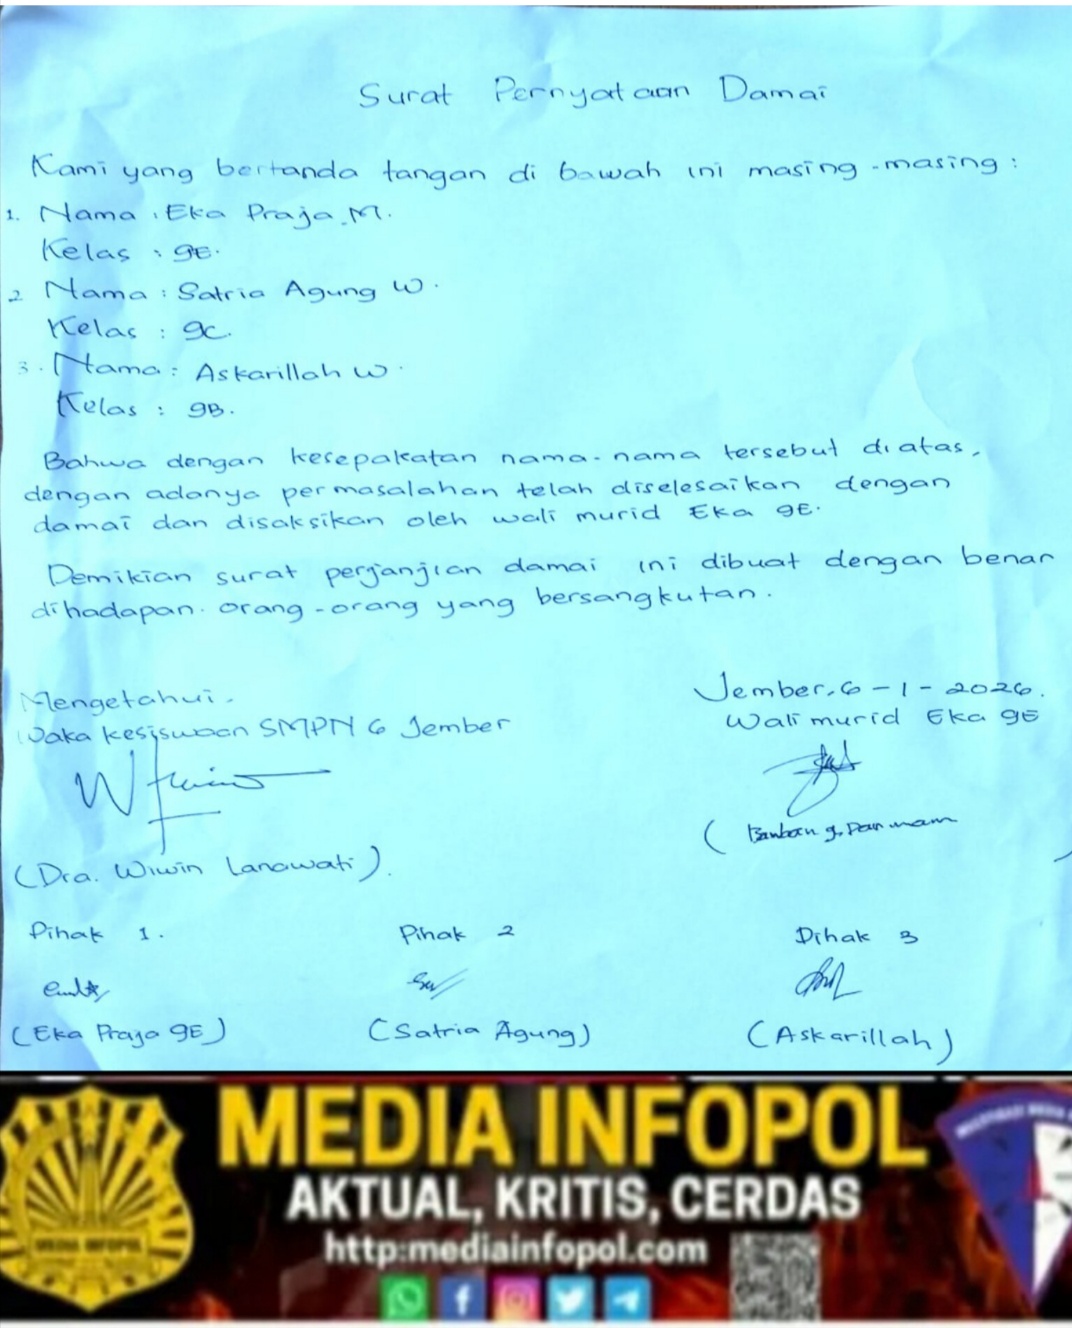 Surat Pernyataan Damai
Kami yang bertanda tangan di bawah ini masing-masing :
1. Nama : Eka Praja.M.
Kelas : 9E.
2 Nama : Satria Agung W.
Kelas : 9C.
3. Nama : Askarillah W.
Kelas : 9B.
Bahwa dengan kesepakatan nama-nama tersebut diatas,
dengan adanya permasalahan telah diselesaikan dengan
damai dan disaksikan oleh wali murid Eka 9E.
Demikian surat perjanjian damai ini dibuat dengan benar
dihadapan orang-orang yang bersangkutan.
Mengetahui.
Waka kesiswaan SMPN 6 Jember
(Dra. Wiwin Lanawati).
Jember, 6-1-2026.
Wali murid Eka 9E
Pihak 1.
Pihak 2
Pihak 3
(Eka Praja 9E)
(Satria Agung)
(Askarillah)
MEDIA INFOPOL
AKTUAL, KRITIS, CERDAS
http:mediainfopol.com
MEDIA INFOPOL